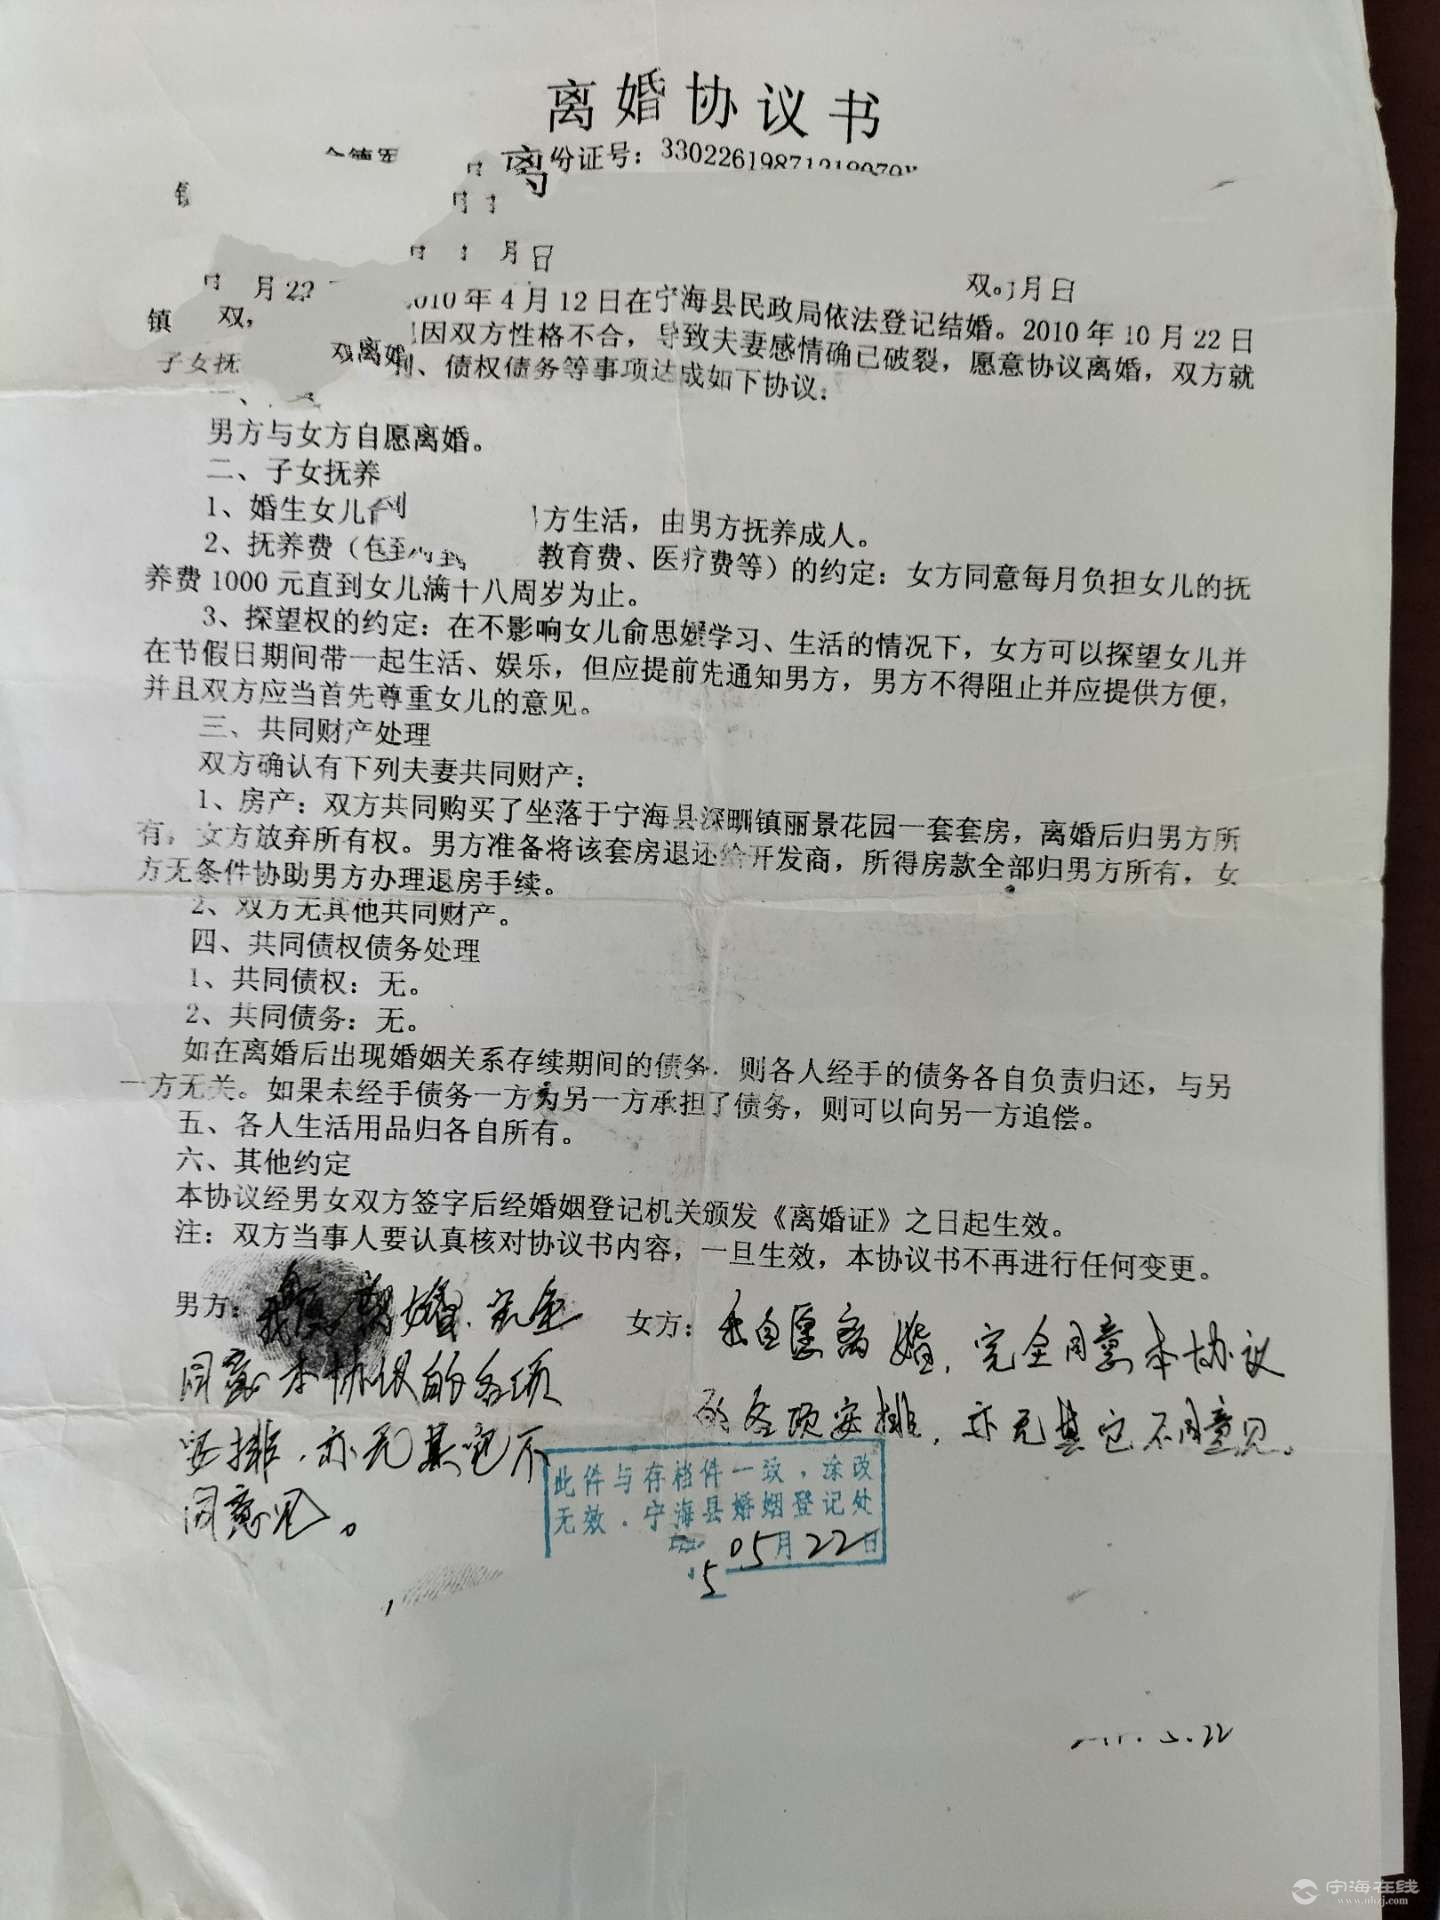 离婚协议书
离 份证号：33022619871219079
月
月日
月22 双。 月日
2010年4月12日在宁海县民政局依法登记结婚。2010年10月22日
镇 双， 因双方性格不合，导致夫妻感情确已破裂，愿意协议离婚，双方就
子女抚 双离婚 、债权债务等事项达成如下协议：
一、
男方与女方自愿离婚。
二、子女抚养
1、婚生女儿 方生活，由男方抚养成人。
2、抚养费（包 教育费、医疗费等）的约定：女方同意每月负担女儿的抚
养费1000元直到女儿满十八周岁为止。
3、探望权的约定：在不影响女儿俞思 学习、生活的情况下，女方可以探望女儿并
在节假日期间带一起生活、娱乐，但应提前先通知男方，男方不得阻止并应提供方便，
并且双方应当首先尊重女儿的意见。
三、共同财产处理
双方确认有下列夫妻共同财产：
1、房产：双方共同购买了坐落于宁海县深甽镇丽景花园一套套房，离婚后归男方所
有，女方放弃所有权。男方准备将该套房退还给开发商，所得房款全部归男方所有，女
方无条件协助男方办理退房手续。
2、双方无其他共同财产。
四、共同债权债务处理
1、共同债权：无。
2、共同债务：无。
如在离婚后出现婚姻关系存续期间的债务，则各人经手的债务各自负责归还，与另
一方无关。如果未经手债务一方为另一方承担了债务，则可以向另一方追偿。
五、各人生活用品归各自所有。
六、其他约定
本协议经男女双方签字后经婚姻登记机关颁发《离婚证》之日起生效。
注：双方当事人要认真核对协议书内容，一旦生效，本协议书不再进行任何变更。
男方： 婚，完全
同意本协议的各项
安排，亦无其它不
同意见。
女方：我自愿离婚，完全同意本协议
的各项安排，亦无其它不同意见。
此件与存档件一致，涂改
无效．宁海县婚姻登记处
5 05月22日
5.22
宁海在线
www.nhzj.com